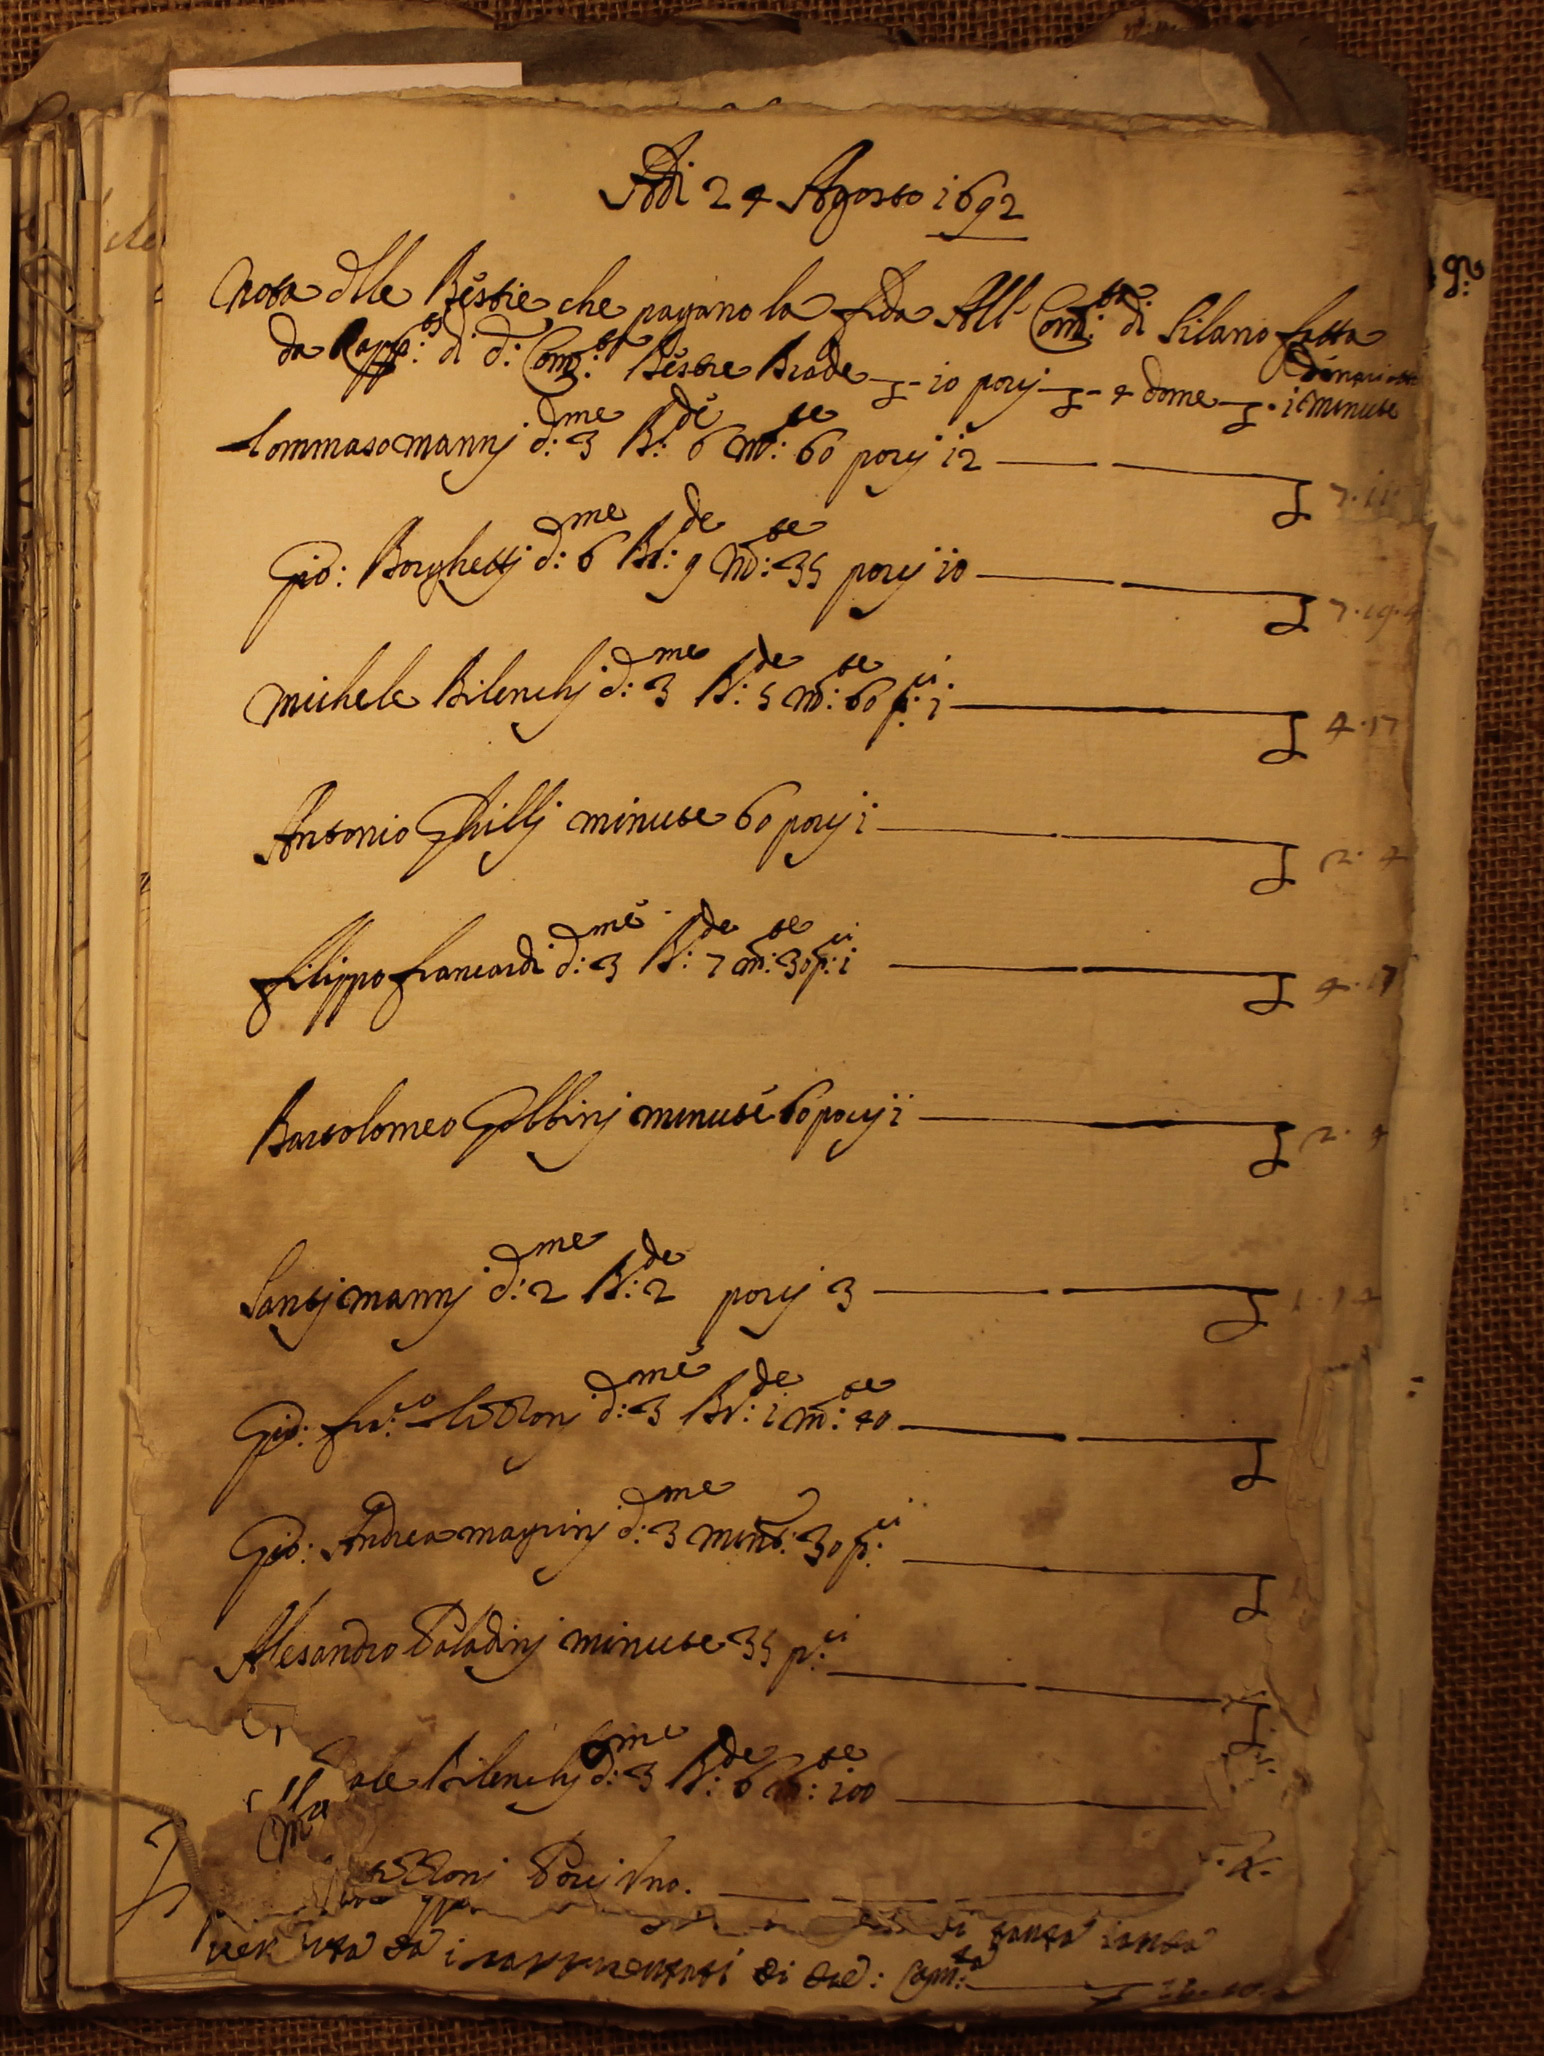 Adi 24 Agosto 1692
Nota dlle Bestie che pagano la fida All Com:ta: di Silano fatta
da Rapp:ti di d: Com:ta Bestie Brade £- 10 porcj £- 4 dome £- 1 minute
Tommaso mannj d:me 3 B:de 6 m:te 60 porcj 12 £ 7.11
Gio: Borghettj d:me 6 Br:de 9 m:te 35 porcj 10 £ 7.19.4
michele Bilenchj d:me 3 B:de 5 m:te 60 p:ci 1 £ 4.17
Antonio Ghillj minute 60 porcj 1 £ 2.4
filippo francardi d:me 3 B:de 7 m:te 30 p:ci 1 £ 4.17
Bartolomeo Gobbinj minute 60 porcj 1 £ 2.4
Santj mannj d:me 2 B:de 2 porcj 3 £ 1.14
Gio: fra:co d:me 3 Br:de 1 m:te 40 £
Gio: Andrea magrinj d:me 3 mint: 30 p:ci £
Alesandro Paladinj minute 35 p:ci £
ale Bilenchj d:me 3 B:de 6 m:te 100
Porcj Uno.
si tanta
da i di Com:ta